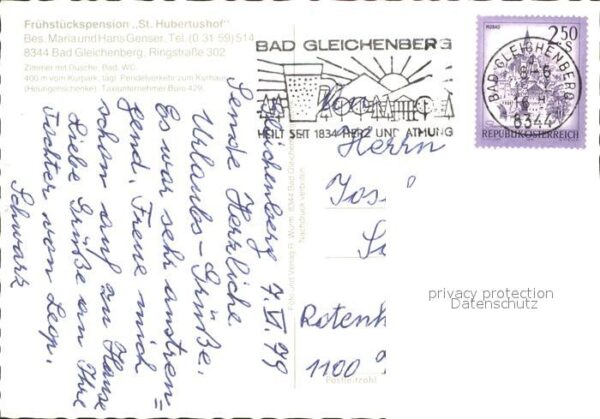 Frühstückspension „St. Hubertushof"
Bes. Maria und Hans Genser, Tel. (0 31 59) 514
8344 Bad Gleichenberg, Ringstraße 302
Zimmer mit Dusche, Bad, WC.
400 m vom Kurpark, tägl. Pendelverkehr zum Kurhaus
(Heurigenschenke). Taxiunternehmer Büro 429.
BAD GLEICHENBERG
HEILT SEIT 1834 HERZ UND ATMUNG
2.50
S
BAD GLEICHENBERG
8344
REPUBLIK ÖSTERREICH
Gleichenberg 7.VI.79
Sende Herzliche
Urlaubs-Grüße.
Es war sehr anstren=
gend. Freue mich
schon auf zu Hause
Liebe Grüße an Ihre
Tochter von Leop.
Schwarz
Foto und Verlag R. Wurm, 8344 Bad Gleichenberg
Nachdruck verboten
Herrn
Jos
Rotenh
1100
Postleitzahl
privacy protection
Datenschutz